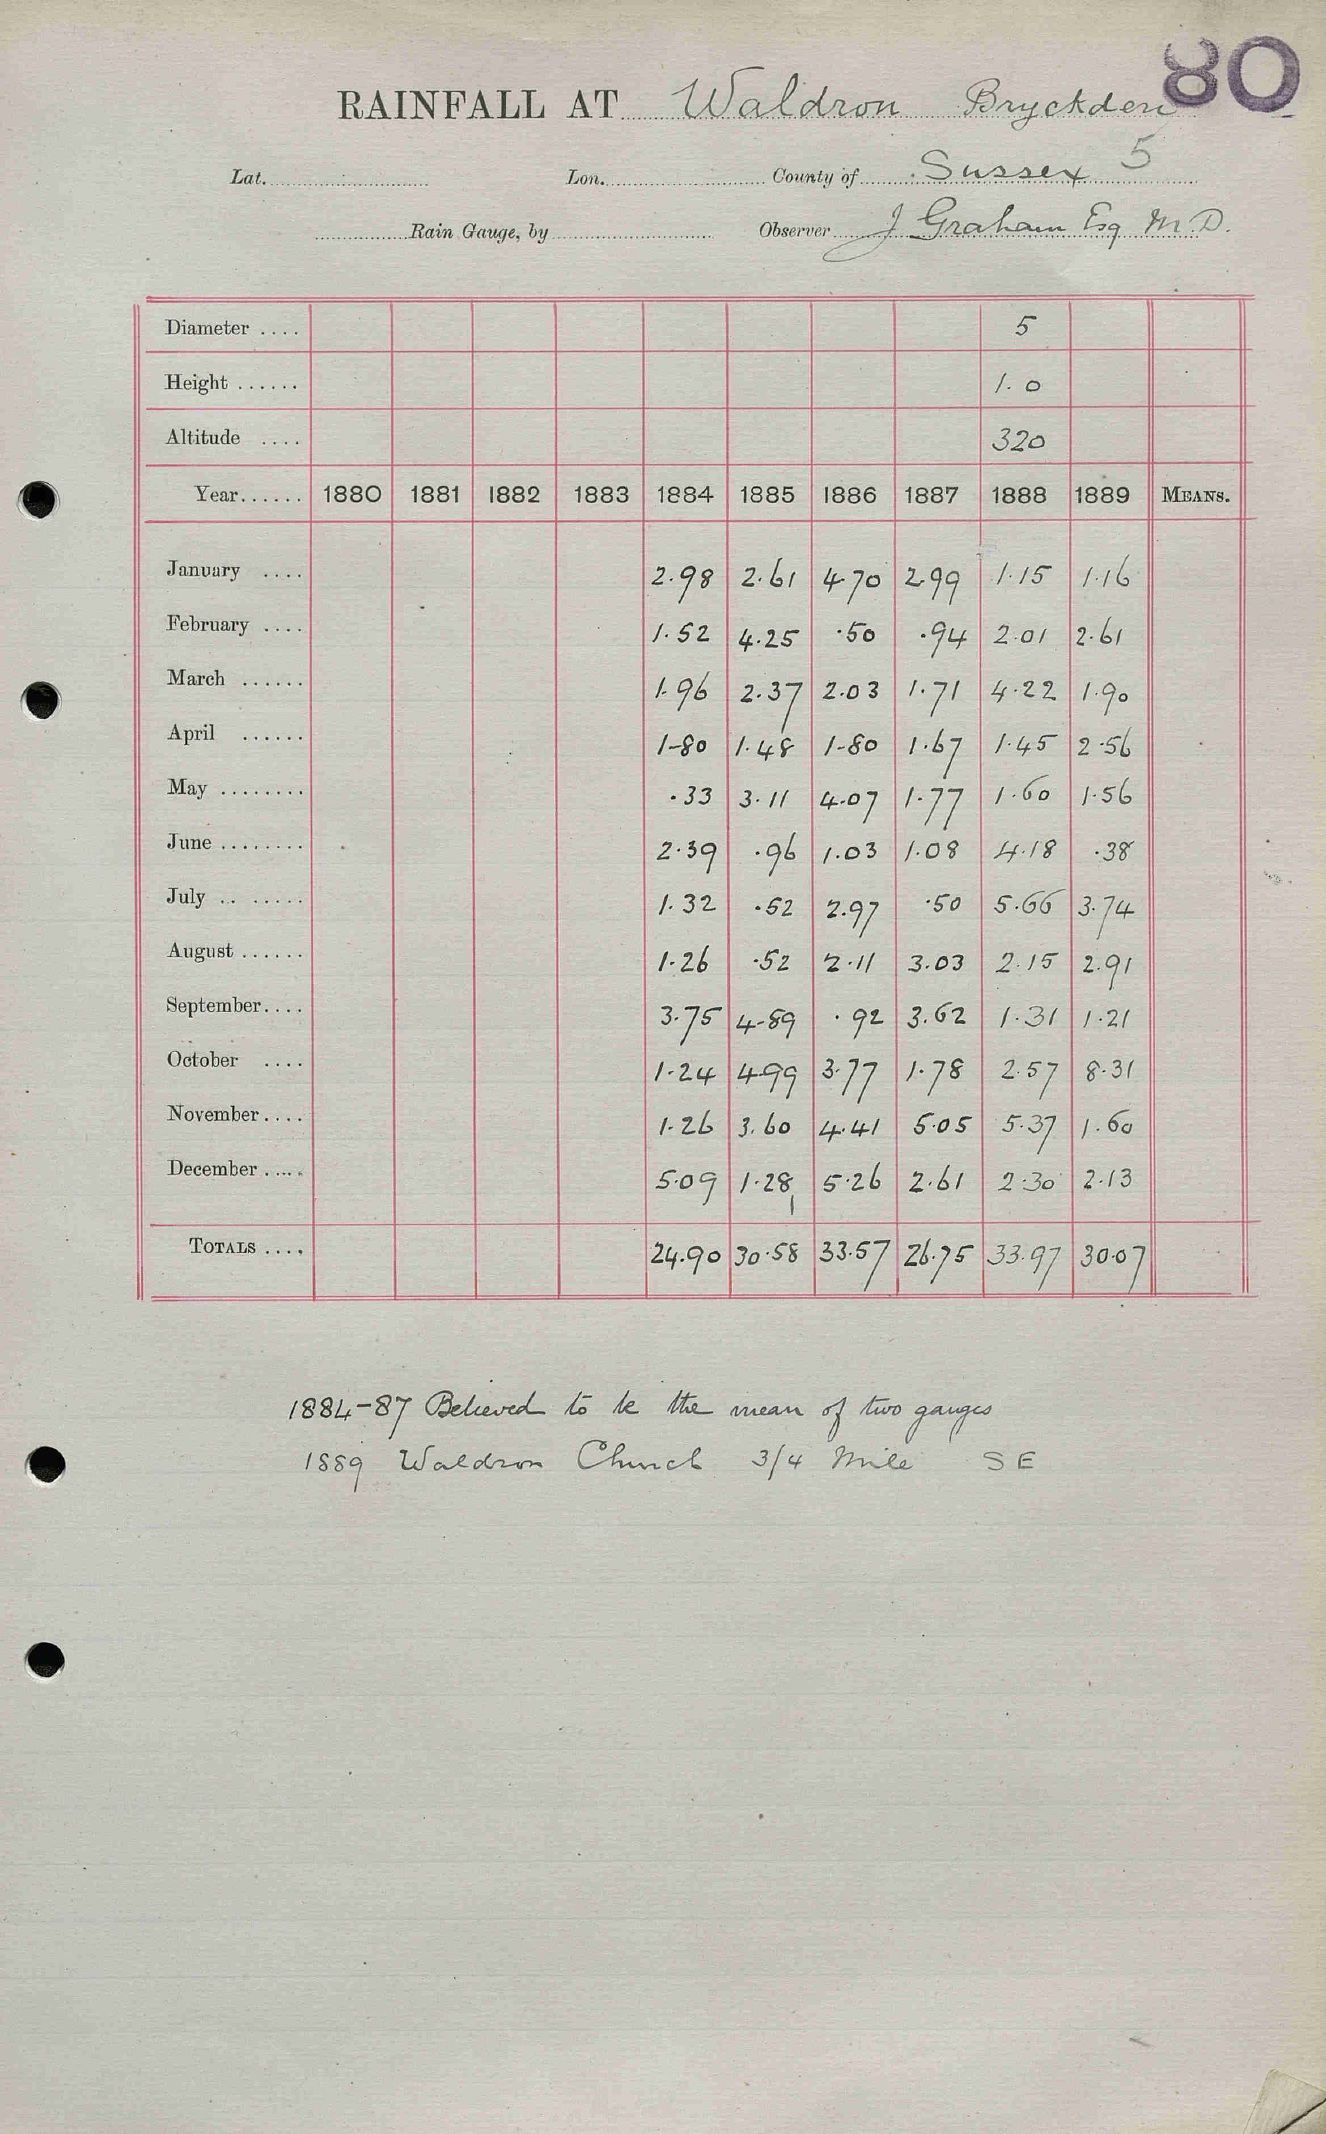 80
RAINFALL AT Waldron Bryckden
Lat. Lon. County of Sussex 5
Rain Gauge, by Observer J Graham Esq M.D.
Diameter .... 5
Height ...... 1.0
Altitude .... 320
Year...... 1880 1881 1882 1883 1884 1885 1886 1887 1888 1889 MEANS.
January .... 2.98 2.61 4.70 2.99 1.15 1.16
February .... 1.52 4.25 .50 .94 2.01 2.61
March ...... 1.96 2.37 2.03 1.71 4.22 1.90
April ...... 1.80 1.48 1.80 1.67 1.45 2.56
May ........ .33 3.11 4.07 1.77 1.60 1.56
June ........ 2.39 .96 1.03 1.08 4.18 .38
July .. ...... 1.32 .52 2.97 .50 5.66 3.74
August ...... 1.26 .52 2.11 3.03 2.15 2.91
September.... 3.75 4.89 .92 3.62 1.31 1.21
October .... 1.24 4.99 3.77 1.78 2.57 8.31
November.... 1.26 3.60 4.41 5.05 5.37 1.60
December ..... 5.09 1.28 5.26 2.61 2.30 2.13
TOTALS .... 24.90 30.58 33.57 26.75 33.97 30.07
1884-87 Believed to be the mean of two gauges
1889 Waldron Church 3/4 Mile SE